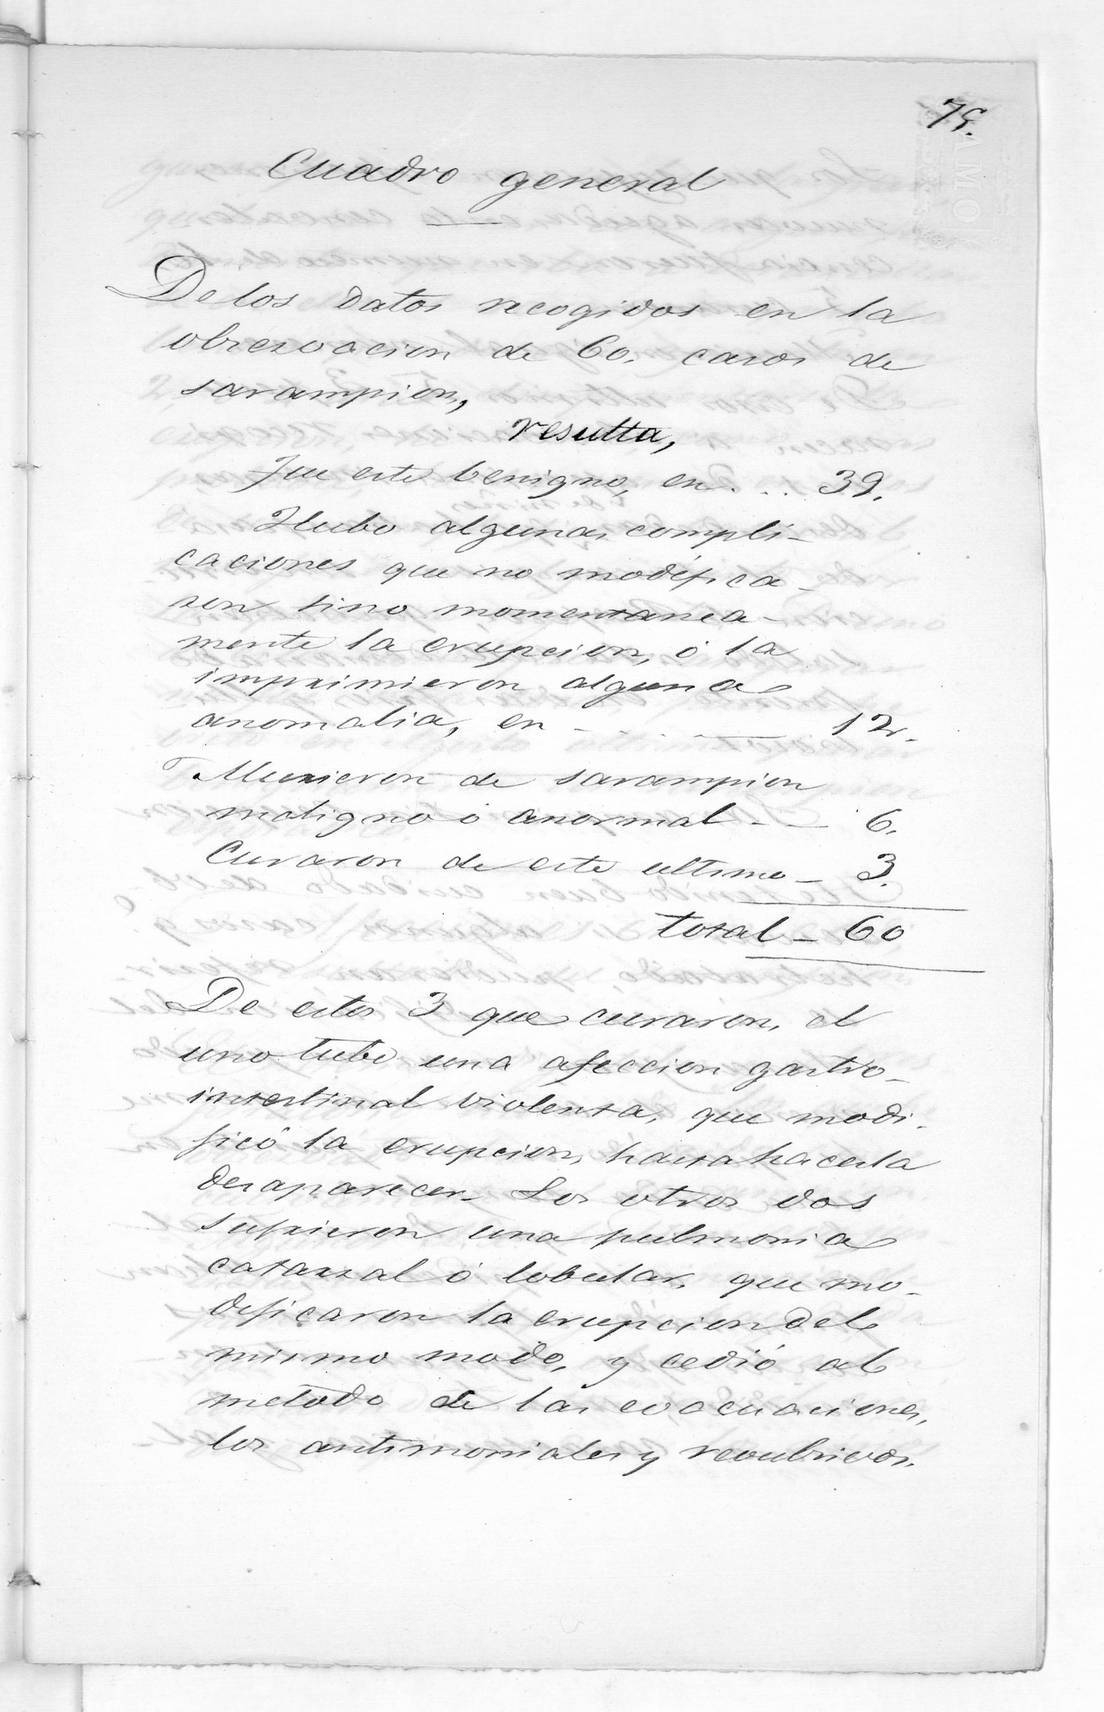 75.
Cuadro general
De los datos recogidos en la
observacion de 60. casos de
sarampion,
resulta,
Fue este benigno, en . . . 39.
Hubo algunas compli-
caciones que no modifica-
ron sino momentanea-
mente la erupcion, ó la
imprimieron alguna
anomalia, en - . - . — 12.
Murieron de sarampion
maligno ó anormal - — 6.
Curaron de este ultimo - 3.
total - 60
De estos 3 que curaron, el
uno tubo una afeccion gastro-
intestinal violenta, que modi-
ficó la erupcion, hasta hacerla
desaparecer. Los otros dos
sufrieron una pulmonia
catarral ó lobular, que mo-
dificaron la erupcion del
mismo modo, y cedió al
metodo de las evacuaciones,
los antimoniales y revulsivos.